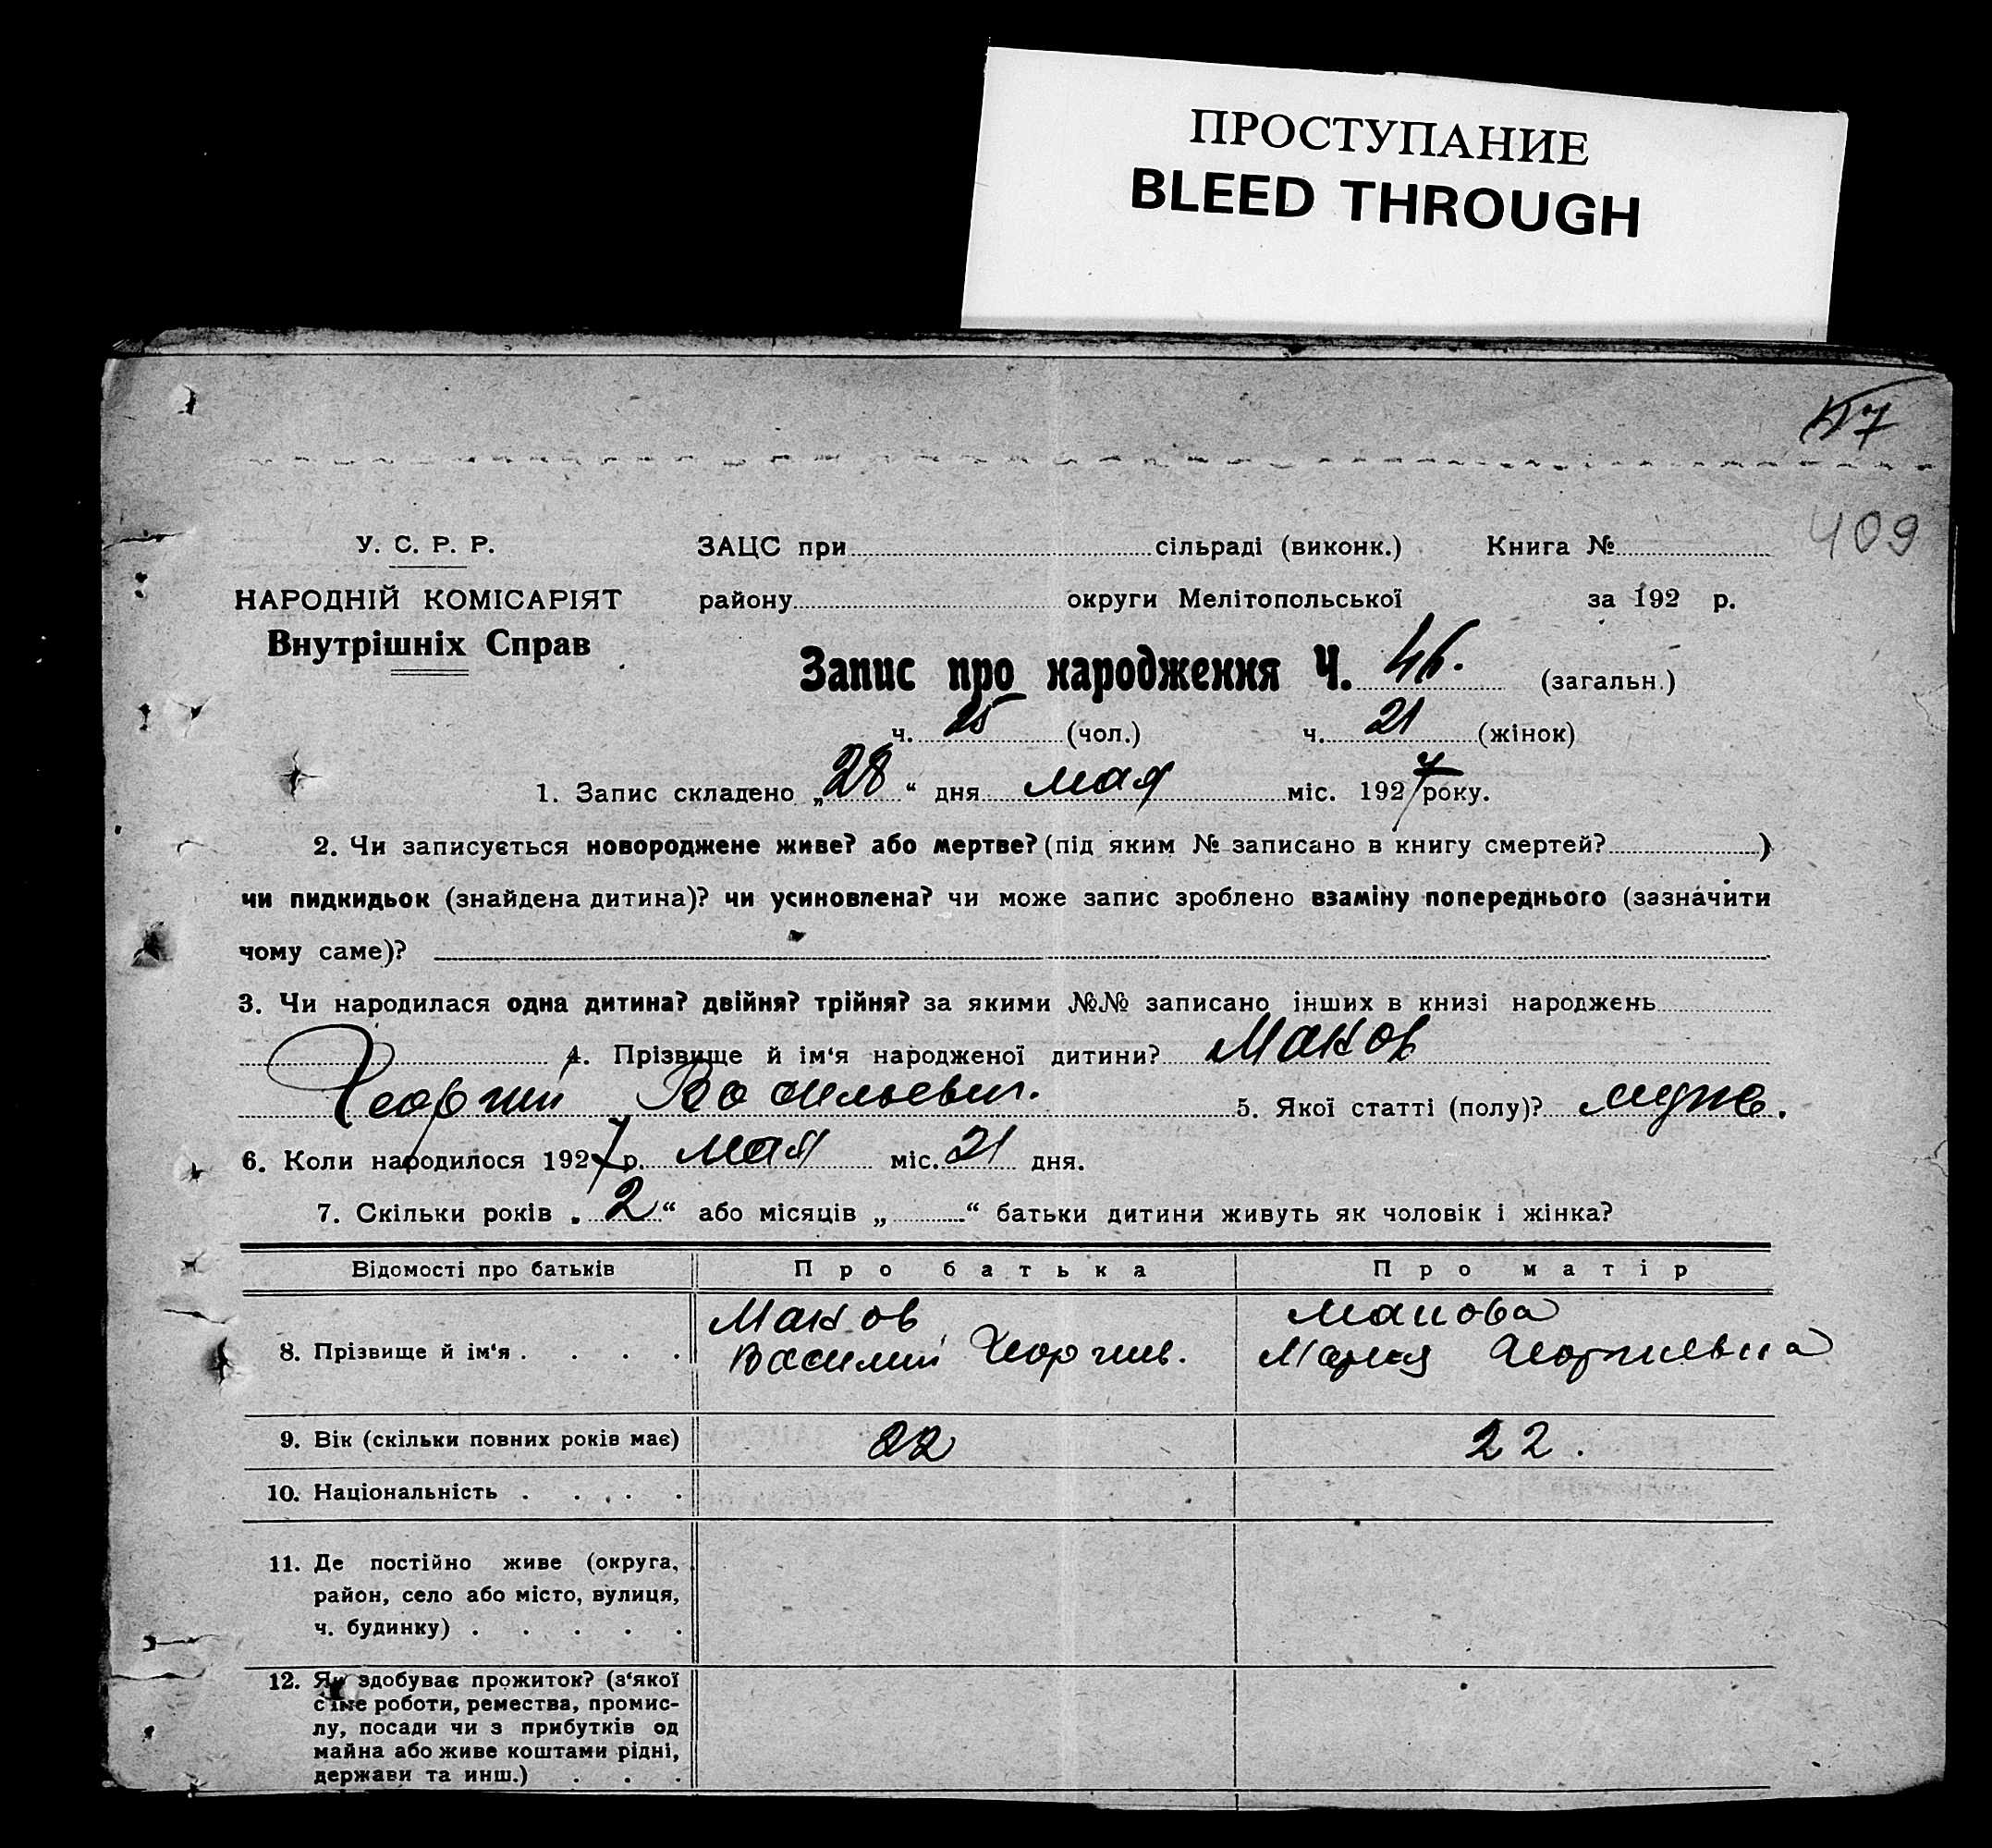 ПРОСТУПАНИЕ
BLEED THROUGH
409
У. С. Р. Р.
НАРОДНІЙ КОМІСАРІЯТ
Внутрішніх Справ
ЗАЦС при сільраді (виконк.) Книга №
району округи Мелітопольської за 192 р.
Запис про народження Ч. 46. (загальн.)
ч. 25 (чол.) ч. 21 (жінок)
1. Запис складено „28“ дня мая міс. 1927 року.
2. Чи записується новороджене живе? або мертве? (під яким № записано в книгу смертей? )
чи пидкидьок (знайдена дитина)? чи усиновлена? чи може запис зроблено взаміну попереднього (зазначити
чому саме)?
3. Чи народилася одна дитина? двійня? трійня? за якими №№ записано інших в книзі народжень
4. Прізвище й ім‘я народженої дитини? Маков
Георгий Васильевич. 5. Якої статті (полу)? мужс.
6. Коли народилося 1927 р. мая міс. 21 дня.
7. Скільки років „2“ або місяців „ “ батьки дитини живуть як чоловік і жінка?
Відомості про батьків Про батька Про матір
8. Прізвище й ім‘я . . . . Маков Василий Георгиев. Макова Мария Георгиевна
9. Вік (скільки повних років має) 22 22.
10. Національність . . . .
11. Де постійно живе (округа,
район, село або місто, вулиця,
ч. будинку) . . . . .
12. Як здобуває прожиток? (з‘якої
саме роботи, ремества, промис-
лу, посади чи з прибутків од
майна або живе коштами рідні,
держави та инш.) . . .